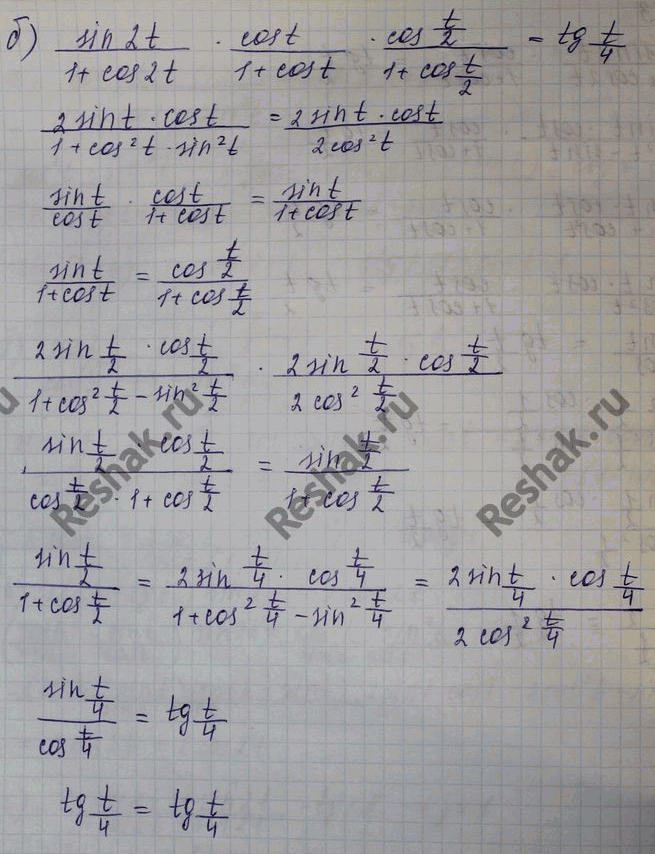 б) sin 2t / 1 + cos 2t · cos t / 1 + cos t · cos t/2 / 1 + cos t/2 = tg t/4
2 sin t · cos t / 1 + cos² t · sin² t = 2 sin t · cos t / 2 cos² t
sin t / cos t · cos t / 1 + cos t = sin t / 1 + cos t
sin t / 1 + cos t = cos t/2 / 1 + cos t/2
2 sin t/2 · cos t/2 / 1 + cos² t/2 - sin² t/2 · 2 sin t/2 · cos t/2 / 2 cos² t/2
sin t/2 · cos t/2 / cos t/2 · 1 + cos t/2 = sin t/2 / 1 + cos t/2
sin t/2 / 1 + cos t/2 = 2 sin t/4 · cos t/4 / 1 + cos² t/4 - sin² t/4 = 2 sin t/4 · cos t/4 / 2 cos² t/4
sin t/4 / cos t/4 = tg t/4
tg t/4 = tg t/4
Reshak.ru
Reshak.ru
Reshak.ru